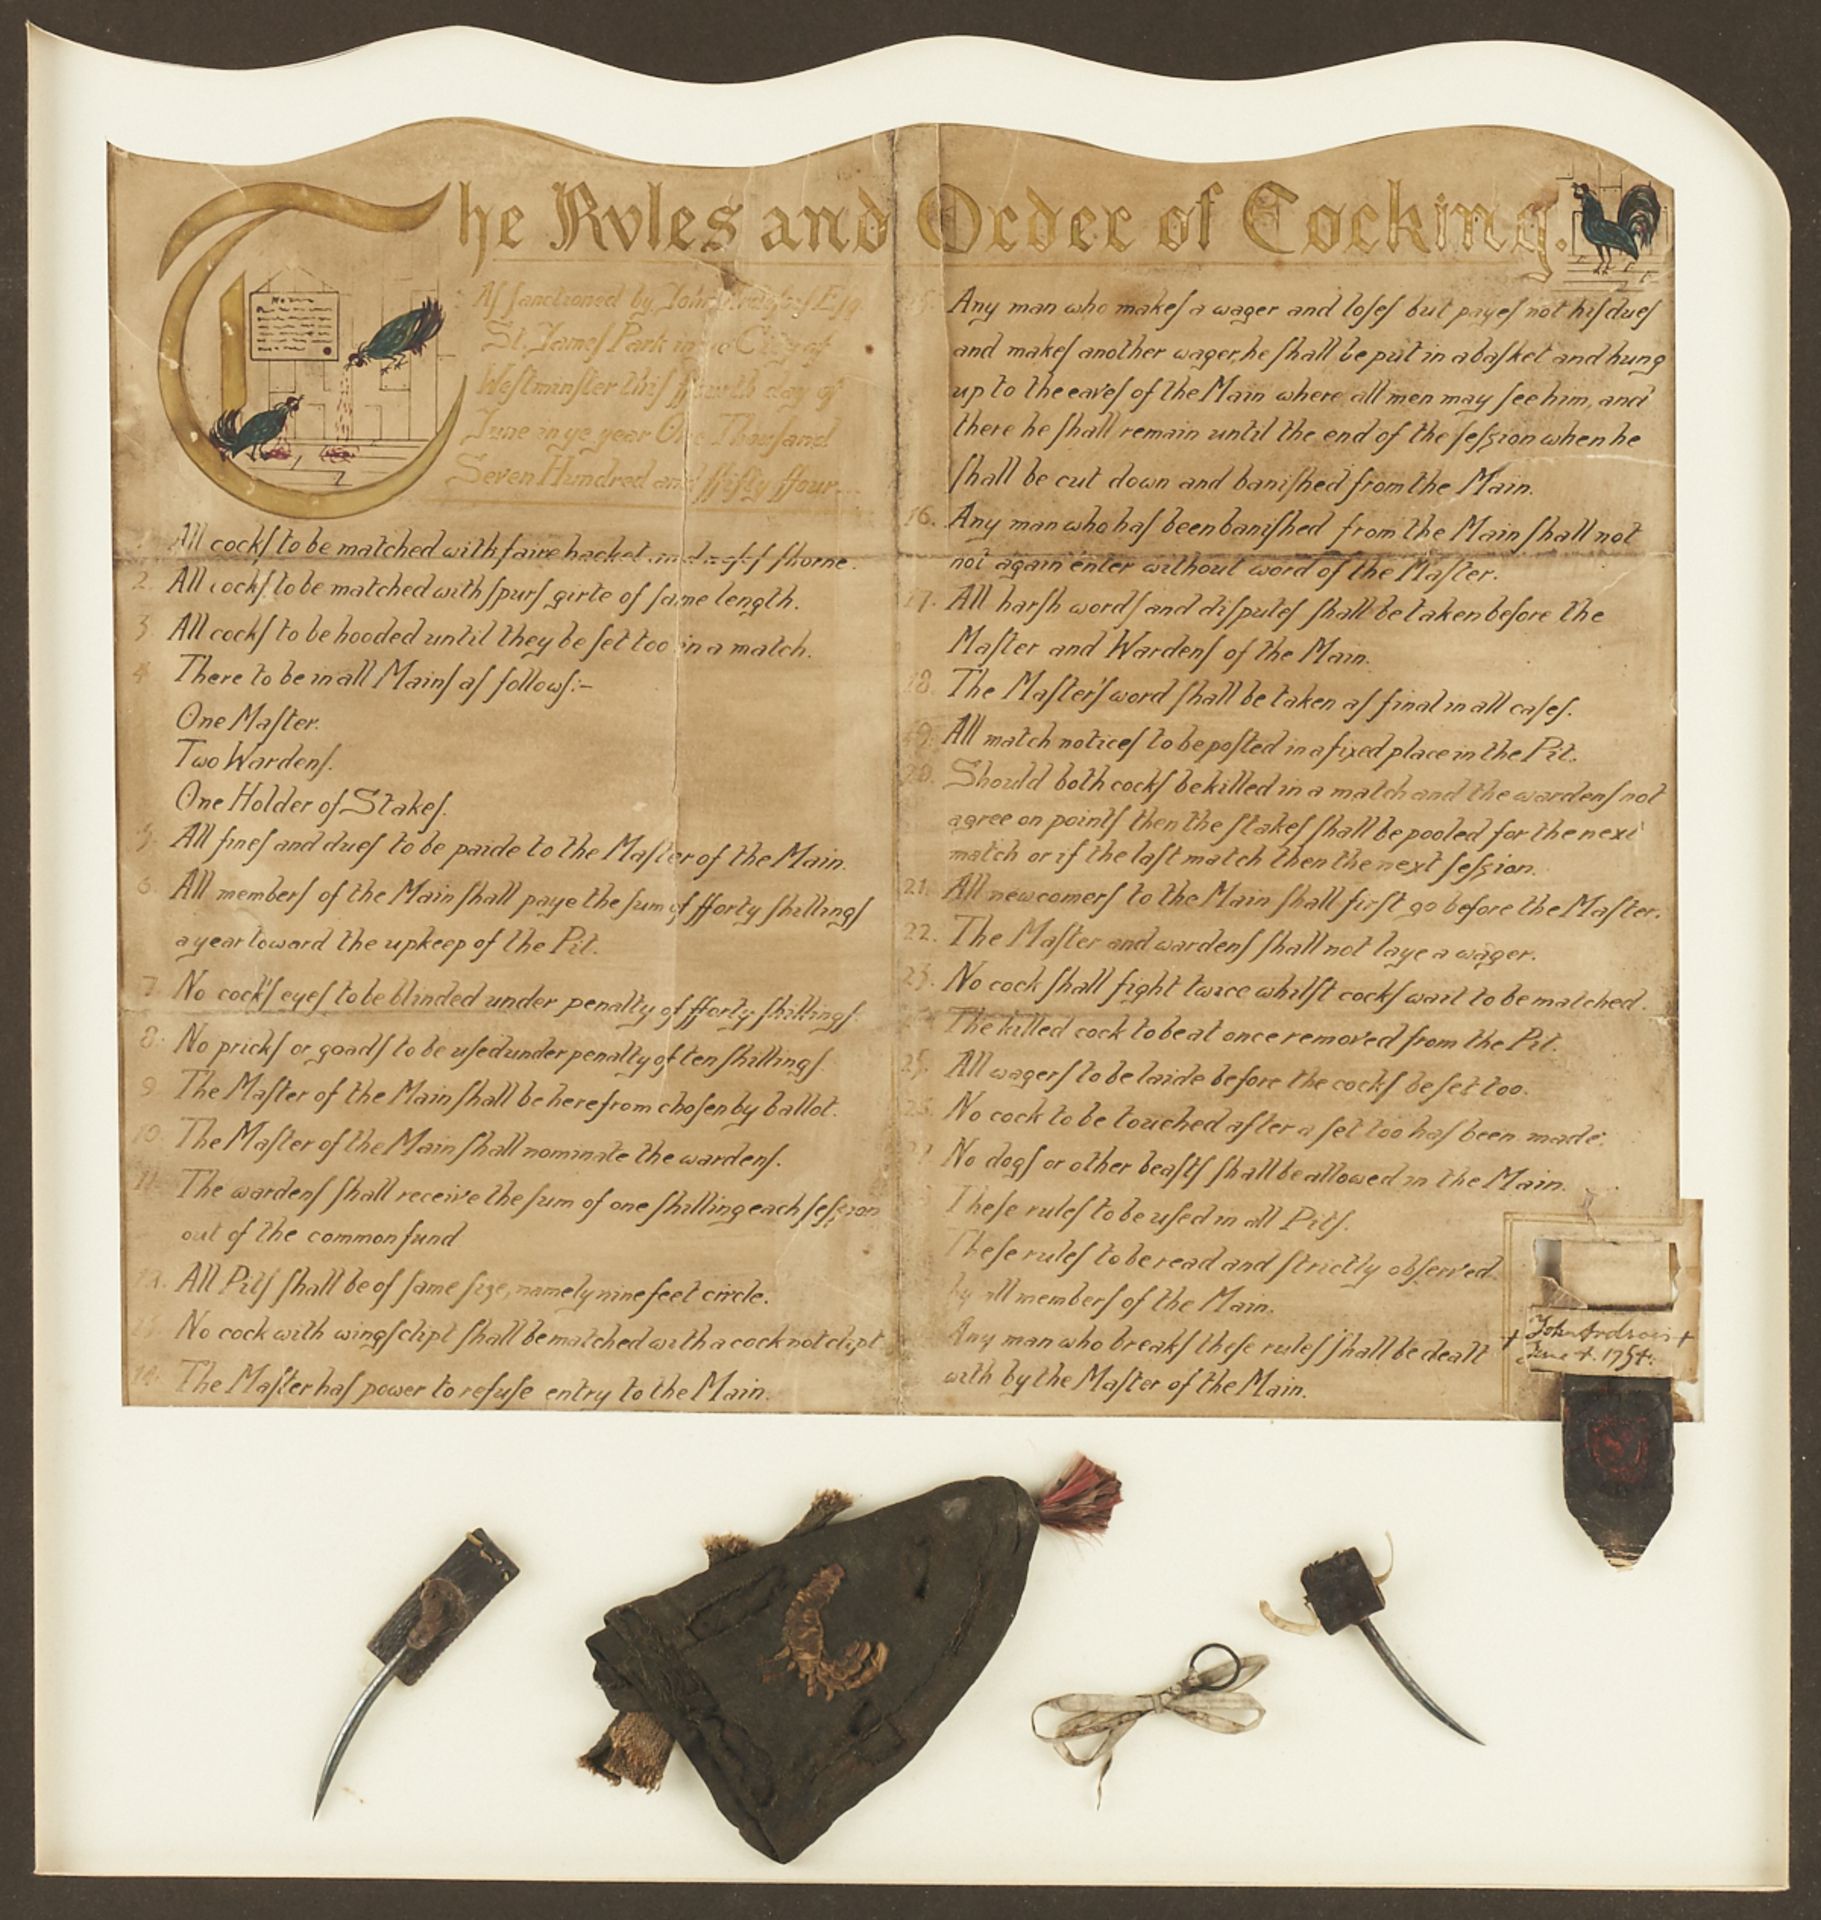 The Rvles and Order of Cocking.
As sanctioned by John Esq.
St. James Park in ye City of
Westminster this ffourth day of
June in ye year One Thousand
Seven Hundred and ffifty ffour
1. All cocks to be matched with faire hacket shorne.
2. All cocks to be matched with spurs girte of same length.
3. All cocks to be hooded until they be set too in a match.
4. There to be in all Mains as follows:-
One Master.
Two Wardens.
One Holder of Stakes.
5. All fines and dues to be paide to the Master of the Main.
6. All members of the Main shall paye the sum of fforty shillings
a year toward the upkeep of the Pit.
7. No cock's eyes to be blinded under penalty of fforty shillings.
8. No pricks or goads to be used under penalty of ten shillings.
9. The Master of the Main shall be herefrom chosen by ballot.
10. The Master of the Main shall nominate the wardens.
11. The wardens shall receive the sum of one shilling each session
out of the common fund
12. All Pits shall be of same size, namely nine feet circle.
13. No cock with wings clipt shall be matched with a cock not clipt
14. The Master has power to refuse entry to the Main.
15. Any man who makes a wager and loses but payes not his dues
and makes another wager, he shall be put in a basket and hung
up to the eaves of the Main where all men may see him, and
there he shall remain until the end of the session when he
shall be cut down and banished from the Main.
16. Any man who has been banished from the Main shall not
not again enter without word of the Master.
17. All harsh words and disputes shall be taken before the
Master and Wardens of the Main.
18. The Master's word shall be taken as final in all cases.
19. All match notices to be posted in a fixed place in the Pit.
20. Should both cocks be killed in a match and the wardens not
agree on points then the stakes shall be pooled for the next
match or if the last match then the next session.
21. All newcomers to the Main shall first go before the Master.
22. The Master and wardens shall not laye a wager.
23. No cock shall fight twice whilst cocks wait to be matched.
The killed cock to be at once removed from the Pit.
25. All wagers to be laide before the cocks be set too.
26. No cock to be touched after a set too has been made.
27. No dogs or other beasts shall be allowed in the Main.
These rules to be used in all Pits.
These rules to be read and strictly observed
by all members of the Main.
Any man who breaks these rules shall be dealt
with by the Master of the Main.
John
June 4. 1754.